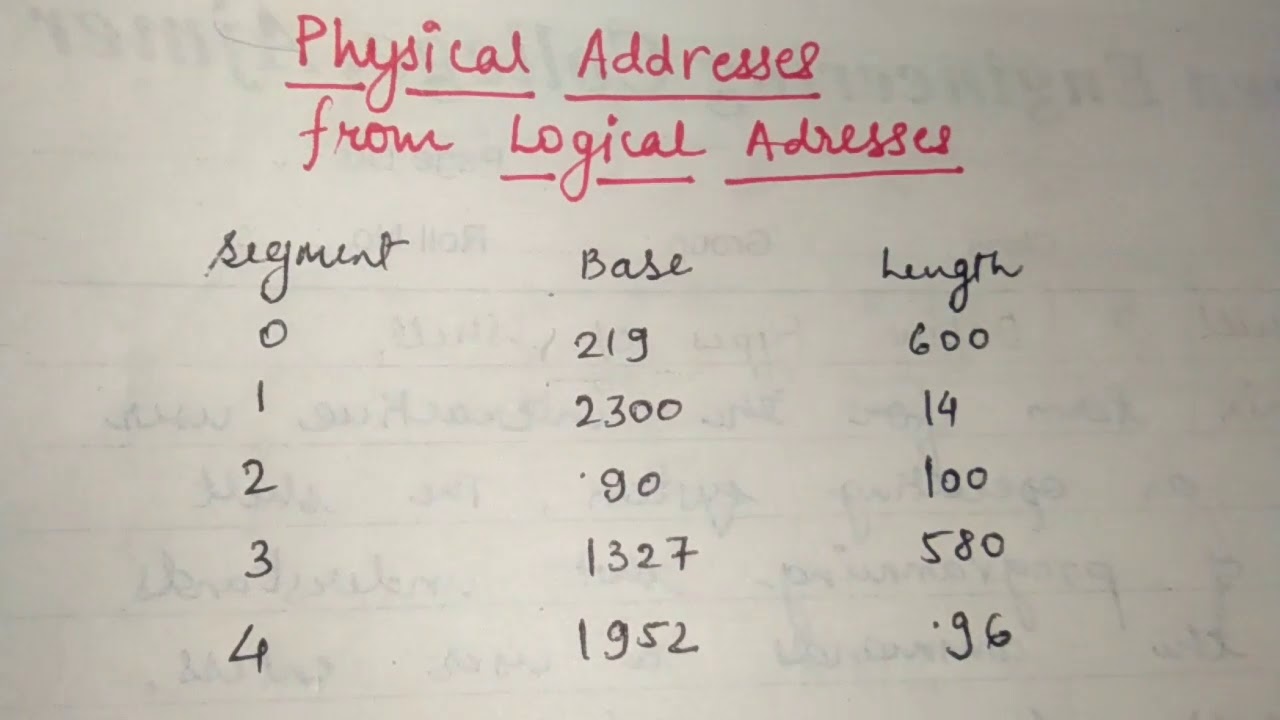 Physical Addresses
from Logical Adresses
Segment Base Length
0 219 600
1 2300 14
2 90 100
3 1327 580
4 1952 96